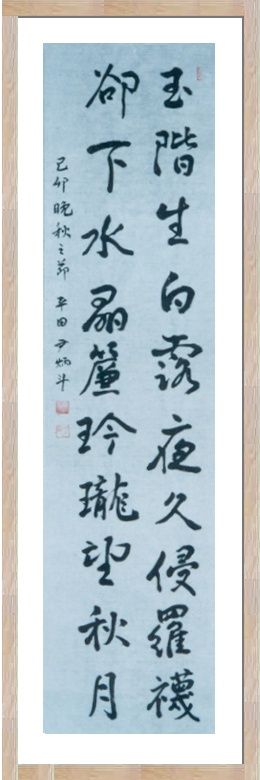 玉階生白露夜久侵羅襪
卻下水晶簾玲瓏望秋月
己卯晚秋之節 平田 尹炳斗